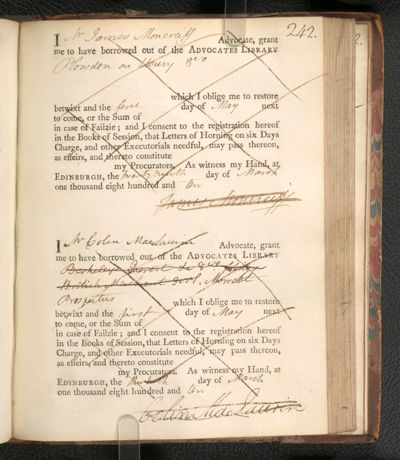 242.
I Mr James Moncreiff Advocate, grant
me to have borrowed out of the ADVOCATES LIBRARY
Plowden on Usury 8vo
which I oblige me to restore
betwixt and the first day of May next
to come, or the Sum of
in case of Failzie; and I consent to the registration hereof
in the Books of Session, that Letters of Horning on six Days
Charge, and other Executorials needful, may pass thereon,
as effeirs, and thereto constitute
my Procurators. As witness my Hand, at
EDINBURGH, the day of March
one thousand eight hundred and ten
James Moncreiff
I Mr Colin MacLaurin Advocate, grant
me to have borrowed out of the ADVOCATES LIBRARY
Prospectus which I oblige me to restore
betwixt and the first day of May next
to come, or the Sum of
in case of Failzie; and I consent to the registration hereof
in the Books of Session, that Letters of Horning on six Days
Charge, and other Executorials needful, may pass thereon,
as effeirs, and thereto constitute
my Procurators. As witness my Hand, at
EDINBURGH, the day of March
one thousand eight hundred and ten
Colin MacLaurin